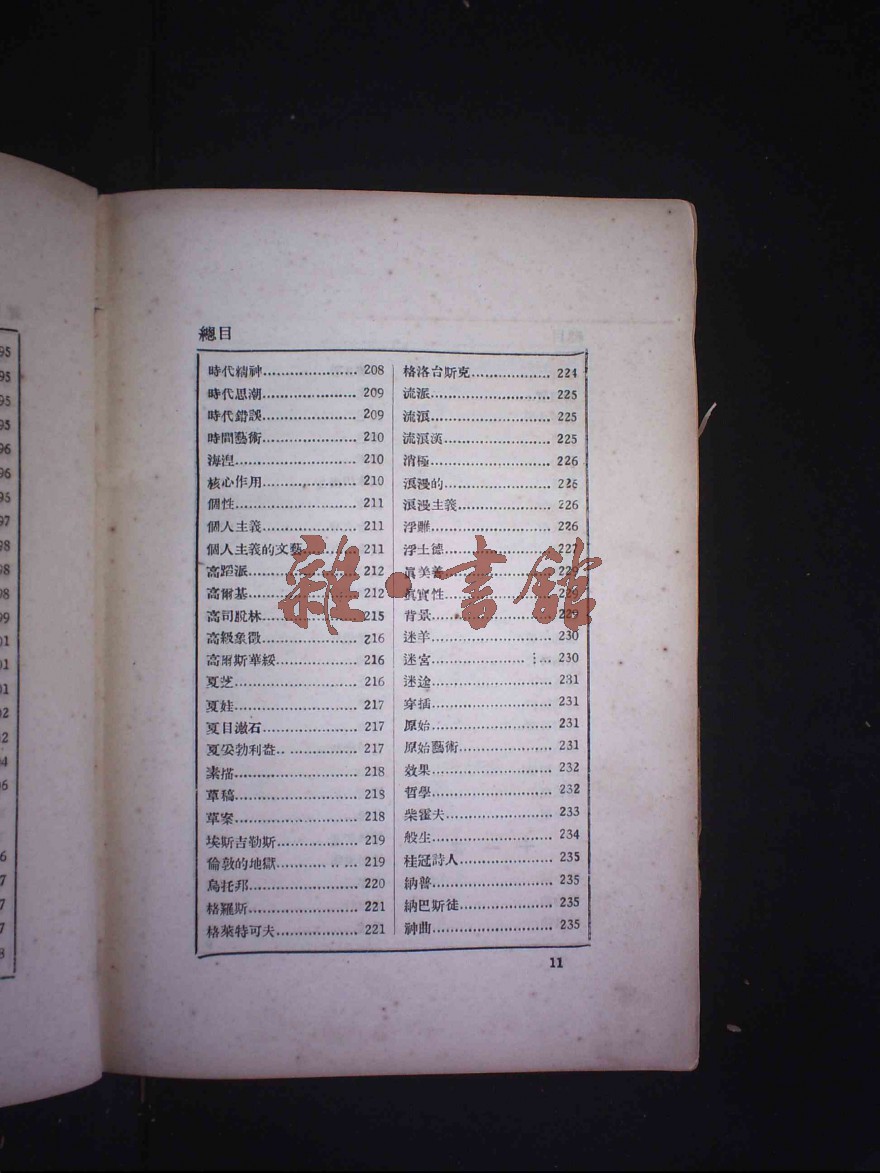 總目
時代精神 208
時代思潮 209
時代錯誤 209
時間藝術 210
海涅 210
核心作用 210
個性 211
個人主義 211
個人主義的文藝 211
高蹈派 212
高爾基 212
高司脫林 215
高級象徵 216
高爾斯華綏 216
夏芝 216
夏娃 217
夏目漱石 217
夏妥勃利盎 217
素描 218
草稿 218
草案 218
埃斯吉勒斯 219
倫敦的地獄 219
烏托邦 220
格羅斯 221
格萊特可夫 221
格洛台斯克 224
流派 225
流浪 225
流浪漢 225
消極 226
浪漫的 226
浪漫主義 226
浮雕 226
浮士德 227
眞美善
眞實性
背景 229
迷羊 230
迷宮 230
迷途 231
穿插 231
原始 231
原始藝術 231
效果 232
哲學 232
柴霍夫 233
般生 234
桂冠詩人 235
納普 235
納巴斯徒 235
神曲 235
11
雜·書館
95
95
95
95
96
96
97
98
98
98
99
01
01
01
02